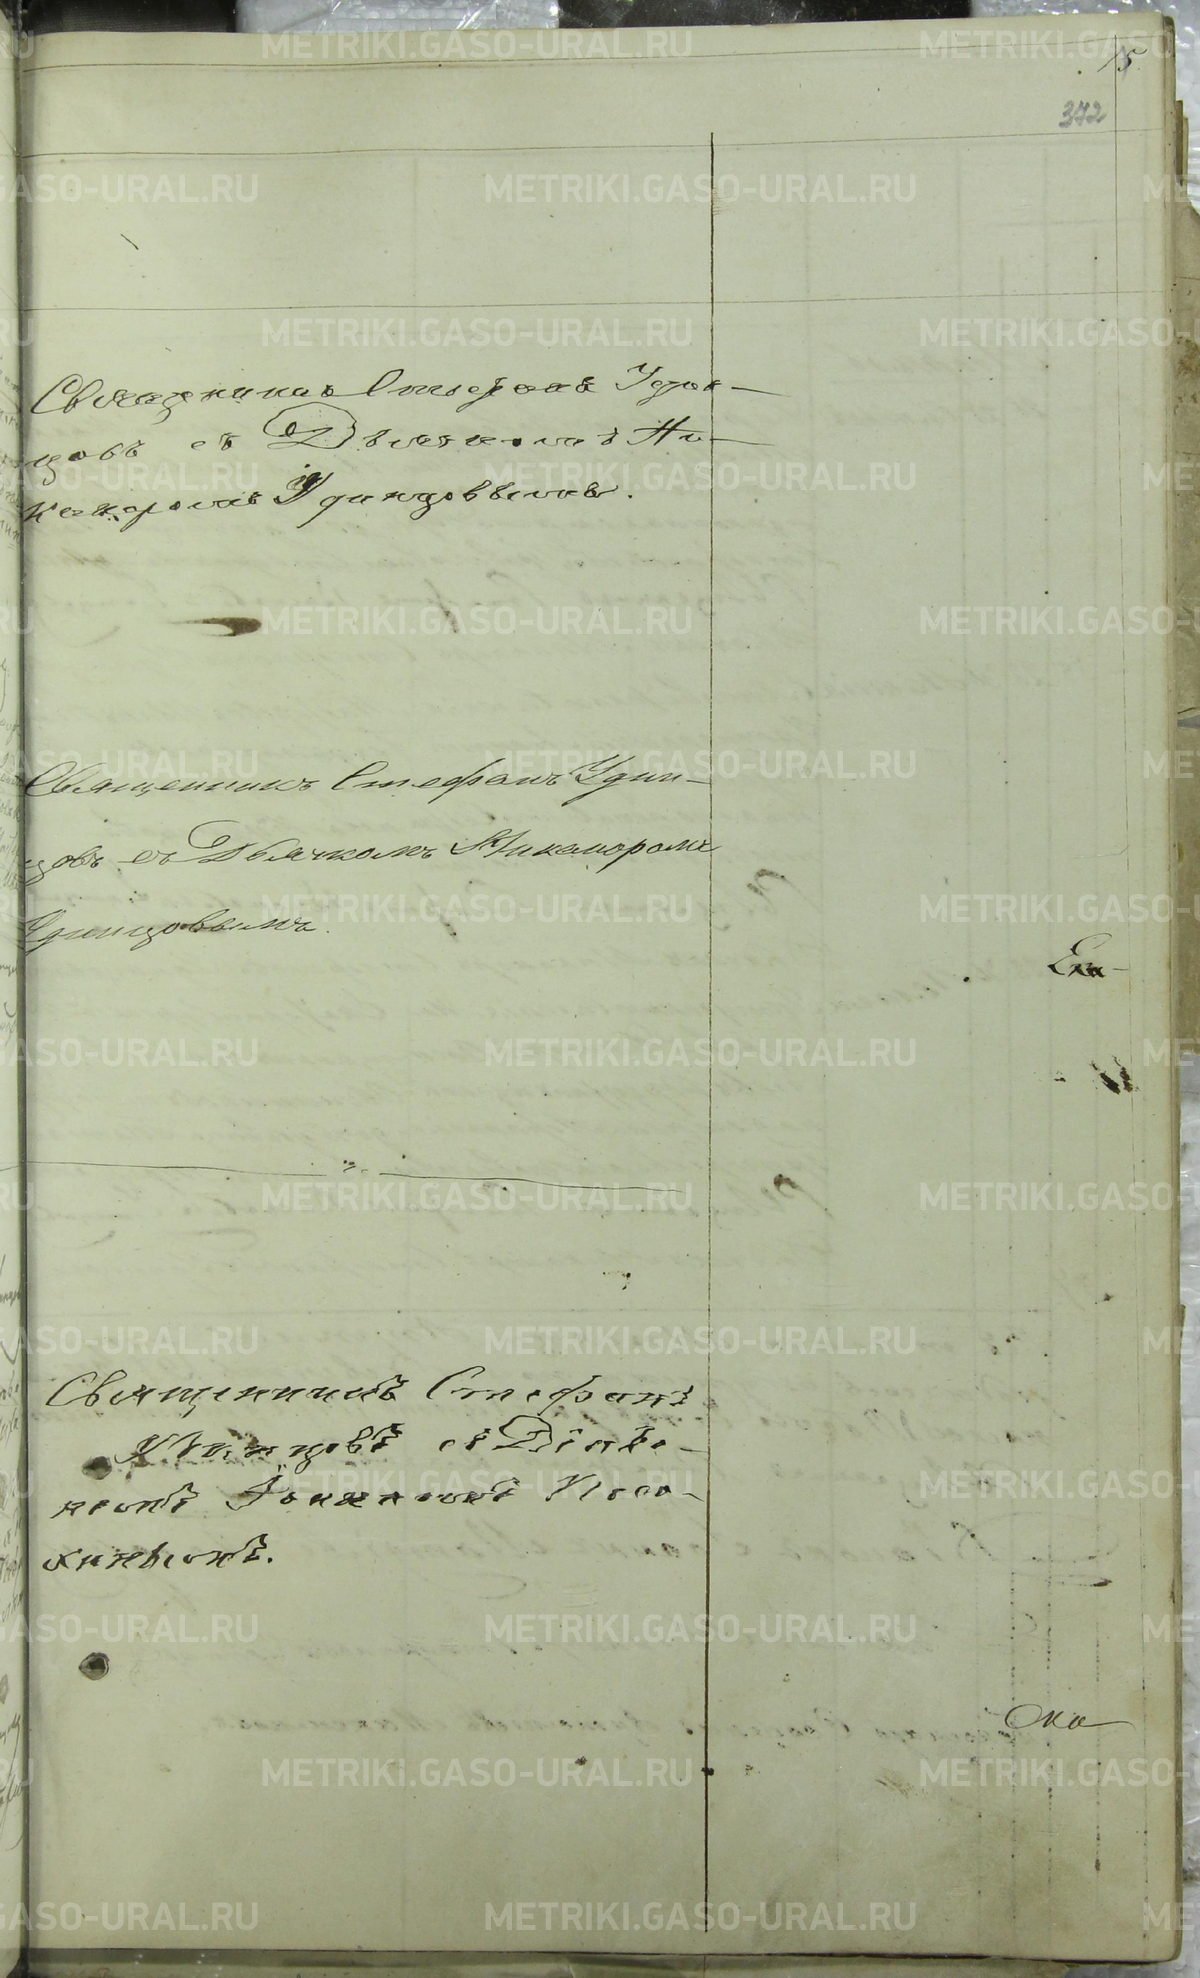 15
372
Священникъ Стефанъ Удин-
цовъ съ Дьячкомъ Ни-
каноромъ Удинцовымъ.
Священникъ Стефанъ Удин-
цовъ съ Дьячкомъ Никаноромъ
Удинцовымъ.
Ека-
Священникъ Стефанъ
Удинцовъ съ Діако-
номъ Іоанномъ